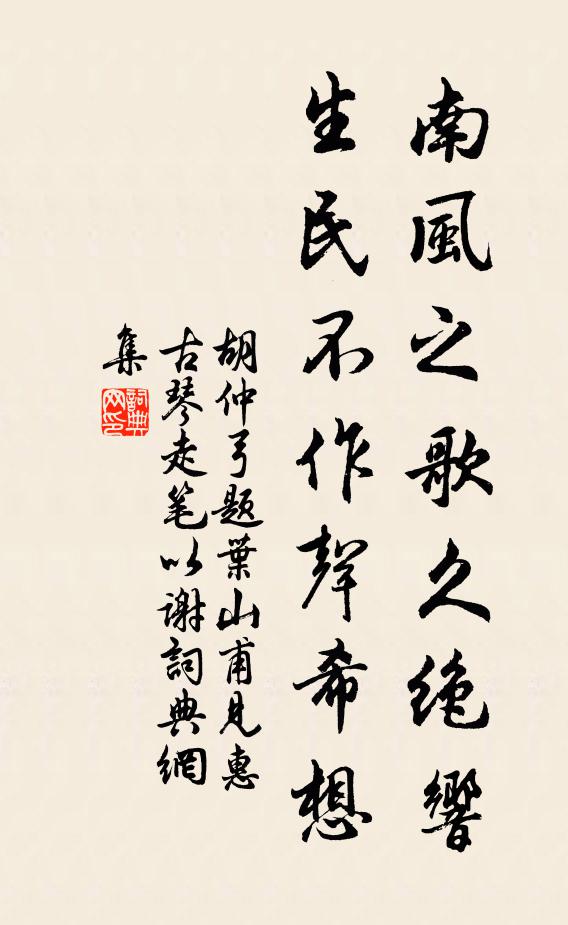 南風之歌久絶響
生民不作聲希想
胡仲弓题葉山甫見惠
古琴走笔以谢詞典網
集
詞典
网印